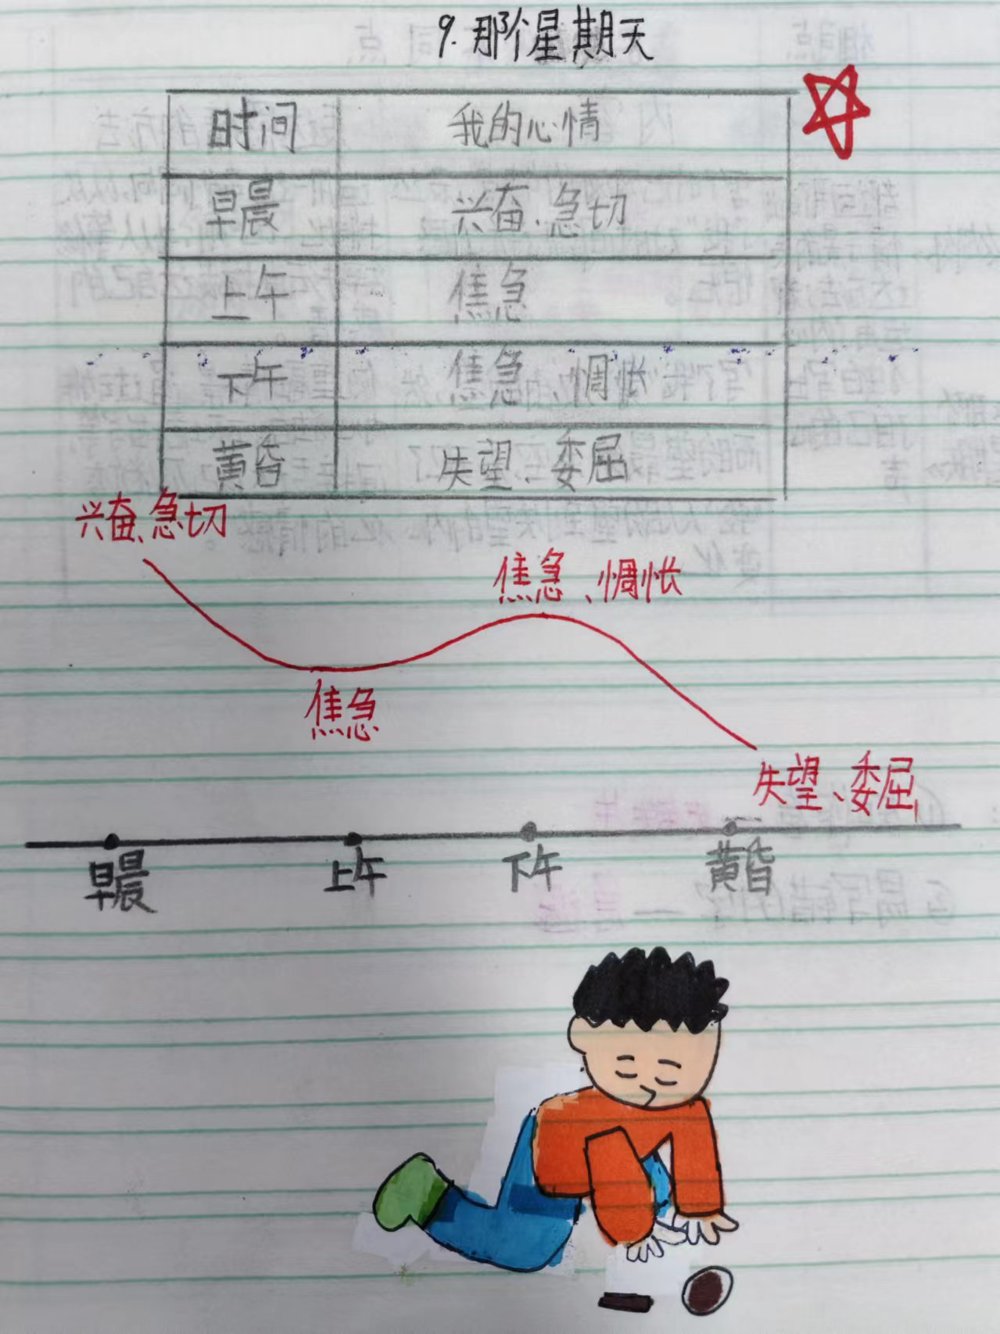 9. 那个星期天
时间 我的心情
早晨 兴奋、急切
上午 焦急
下午 焦急、惆怅
黄昏 失望、委屈
兴奋、急切
焦急、惆怅
焦急
失望、委屈
早晨 上午 下午 黄昏